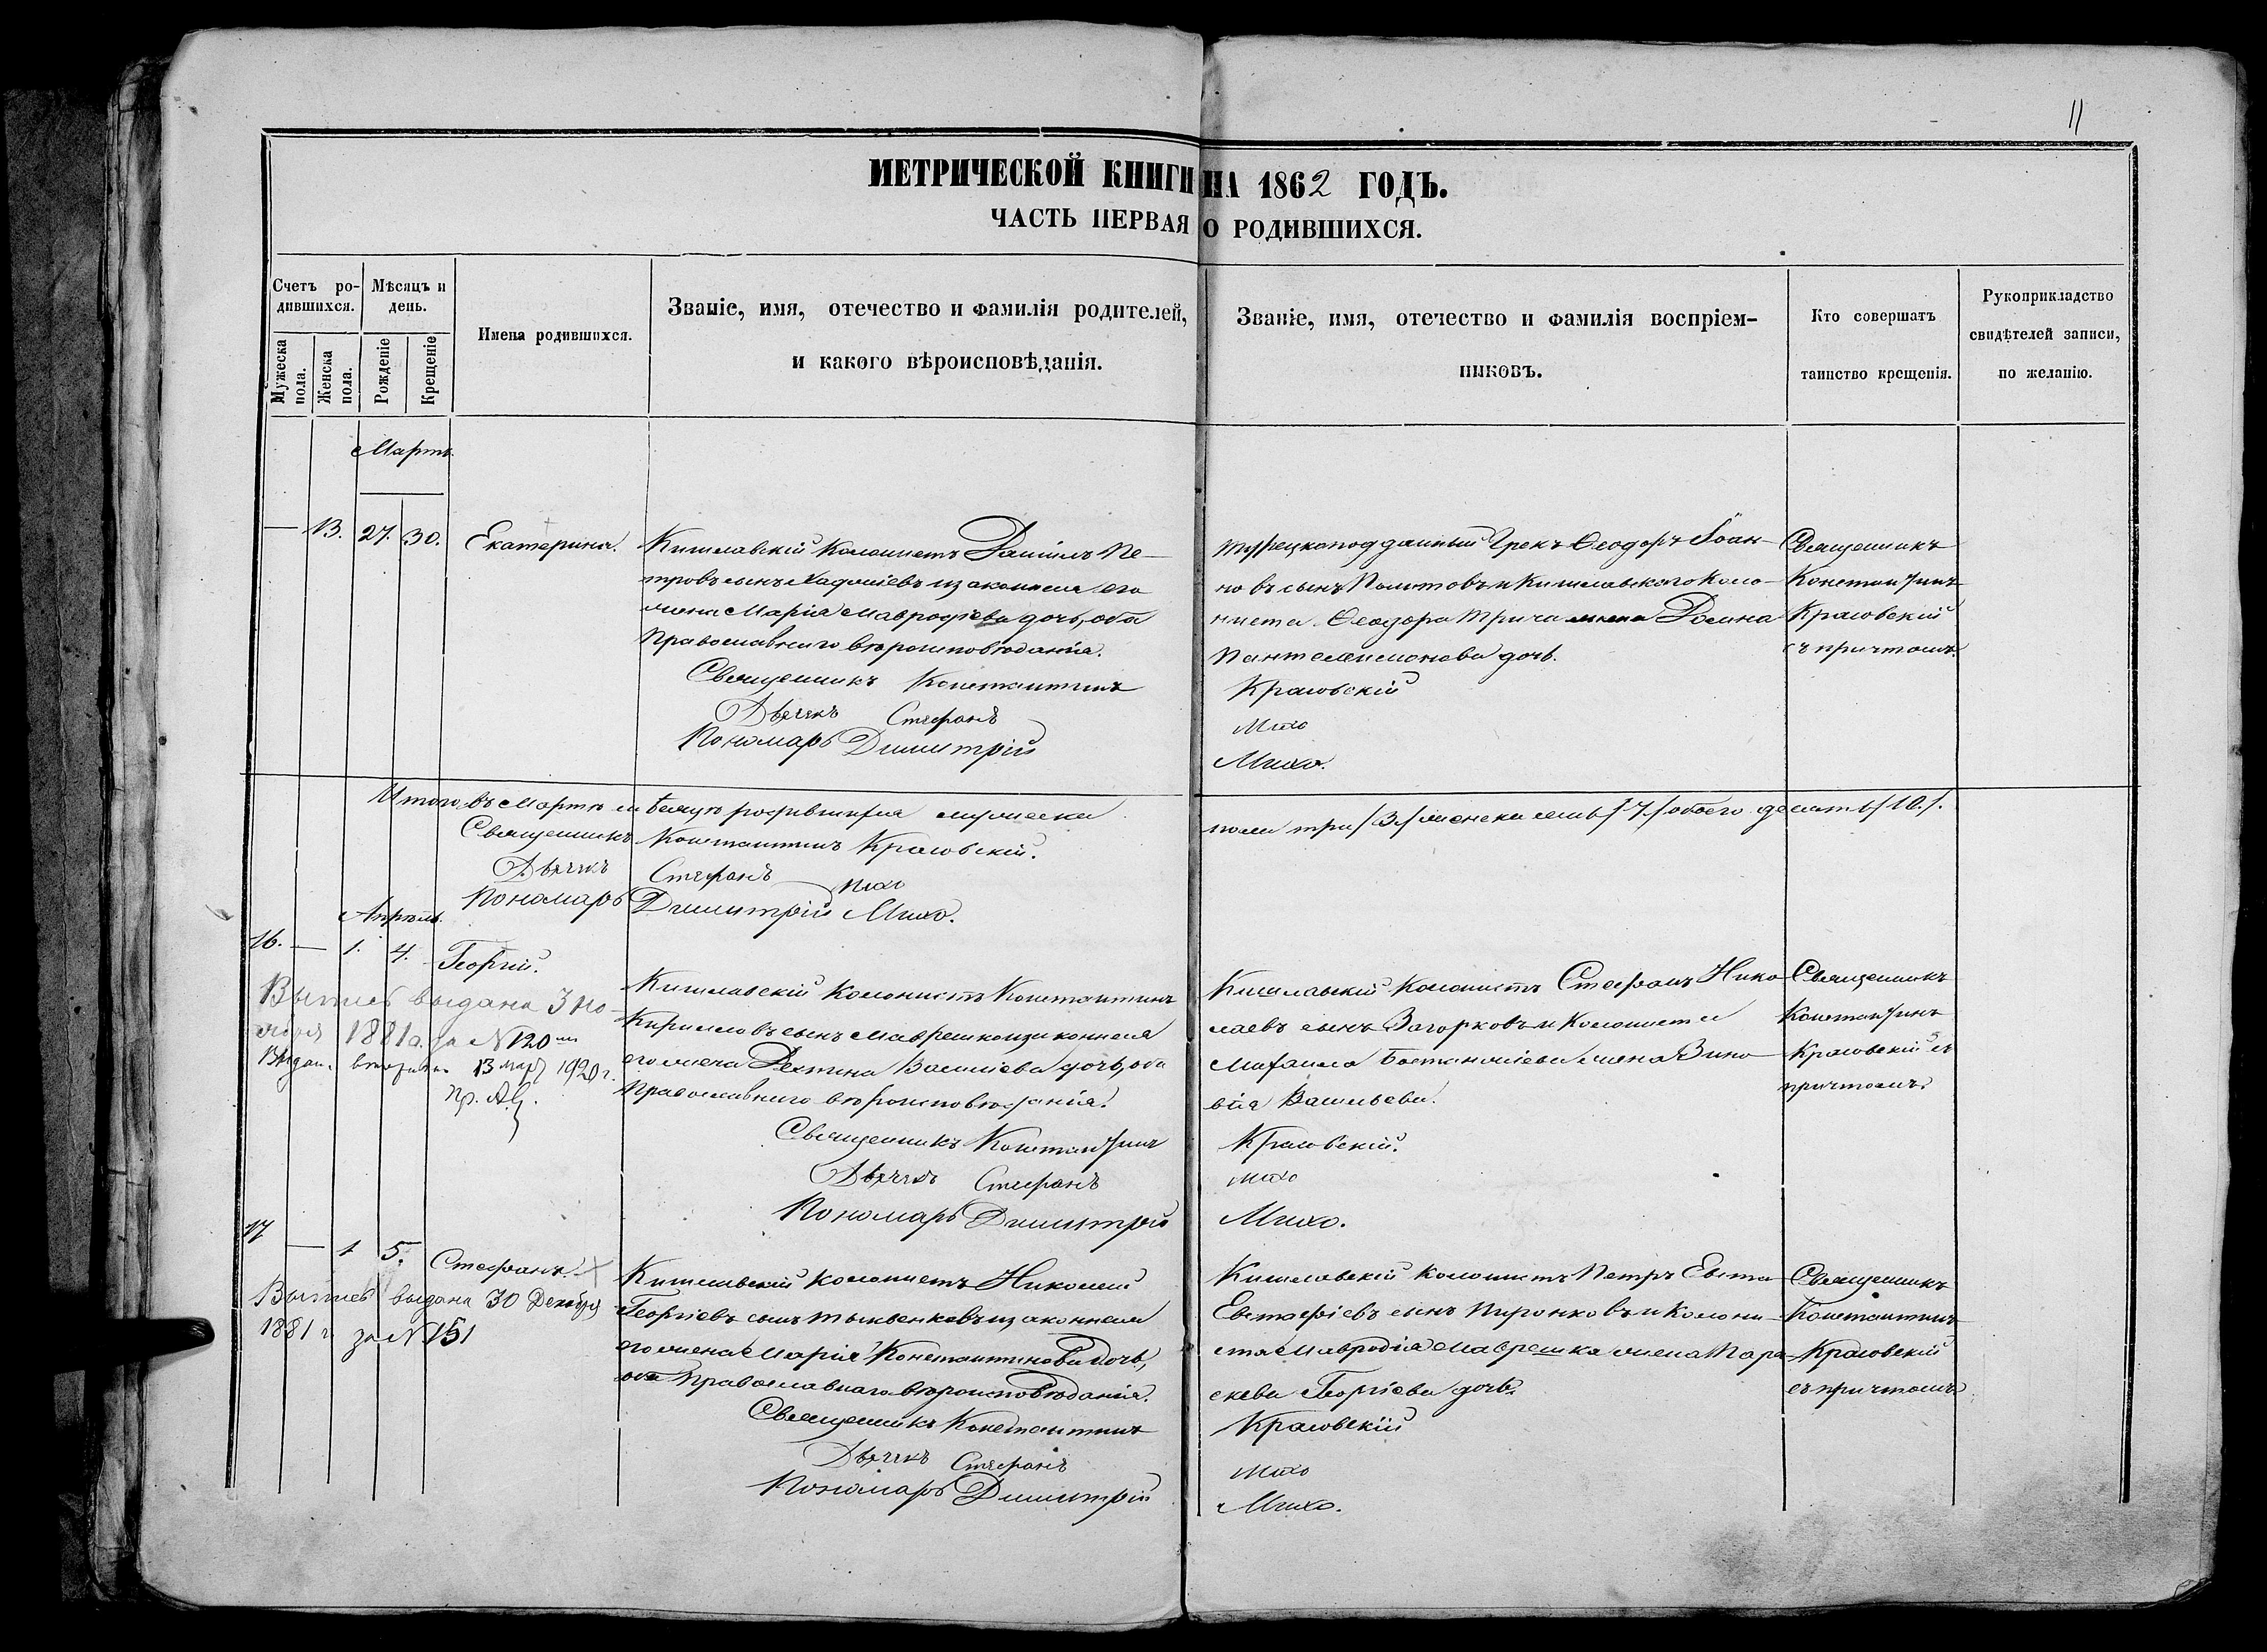 11
МЕТРИЧЕСКОЙ КНИГИ НА 1862 ГОДЪ.
ЧАСТЬ ПЕРВАЯ О РОДИВШИХСЯ.
Счетъ ро-
дившихся.
Мужеска пола.
Женска пола.
Мѣсяцъ и
день.
Рожденіе
Крещеніе
Имена родившихся.
Званіе, имя, отечество и фамилія родителей,
и какого вѣроисповѣданія.
Званіе, имя, отечество и фамилія воспріем-
никовъ.
Кто совершатъ
таинство крещенія.
Рукоприкладство
свидѣтелей записи,
по желанію.
Мартъ.
— 13. 27. 30. Екатерина.
Кишлавскій Колонистъ Даніилъ Пе-
тровъ сынъ законная его
жена Марія Мавродіева дочь, оба
Православнаго вѣроисповѣданія.
Священникъ Константинъ
Дьячекъ Стефанъ
Пономарь Димитрій
Турецкоподданный Грекъ Ѳеодоръ Іоан-
новъ сынъ и Кишлавскаго Коло-
ниста Ѳеодора жена
Пантелеимонова дочь.
Краговскій
Михо
Михо.
Священникъ
Константинъ
Краговскій
съ причтомъ.
Итого въ Мартѣ мѣсяцѣ родившихся мужеска
пола три /3/ женска семь /7/ обоего десять /10./.
Священникъ Константинъ Краговскій.
Дьячекъ Стефанъ Михо
Пономарь Димитрій Михо.
Апрѣль
16. — 1. 4. Георгій.
Выпись выдана 3 но-
ября 1881 г. за N 120
Выдана вторично 13 мар 1920 г.
Кишлавскій Колонистъ Константинъ
Кирилловъ сынъ законная
его жена Васильева дочь, оба
Православнаго вѣроисповѣданія.
Священникъ Константинъ
Дьячекъ Стефанъ
Пономарь Димитрій
Кишлавскій Колонистъ Стефанъ Нико-
лаевъ сынъ Загорковъ и Колониста
Михаила жена Зино-
вія Васильева.
Краговскій.
Михо
Михо.
Священникъ
Константинъ
Краговскій съ
причтомъ.
17 — 1 5. Стефанъ.
Выпись выдана 30 Декабря
1881 г. за N 151
Кишлавскій колонистъ Николай
Георгіевъ сынъ законная
его жена Марія Константинова дочь,
оба Православнаго вѣроисповѣданія.
Священникъ Константинъ
Дьячекъ Стефанъ
Пономарь Димитрій
Кишлавскій колонистъ Петръ Евста-
Евстафіевъ сынъ Пиронковъ и Колони-
ста Мавродія Маврешка жена Пара-
скева Георгіева дочь.
Краговскій
Михо
Михо.
Священникъ
Константинъ
Краговскій
съ причтомъ.